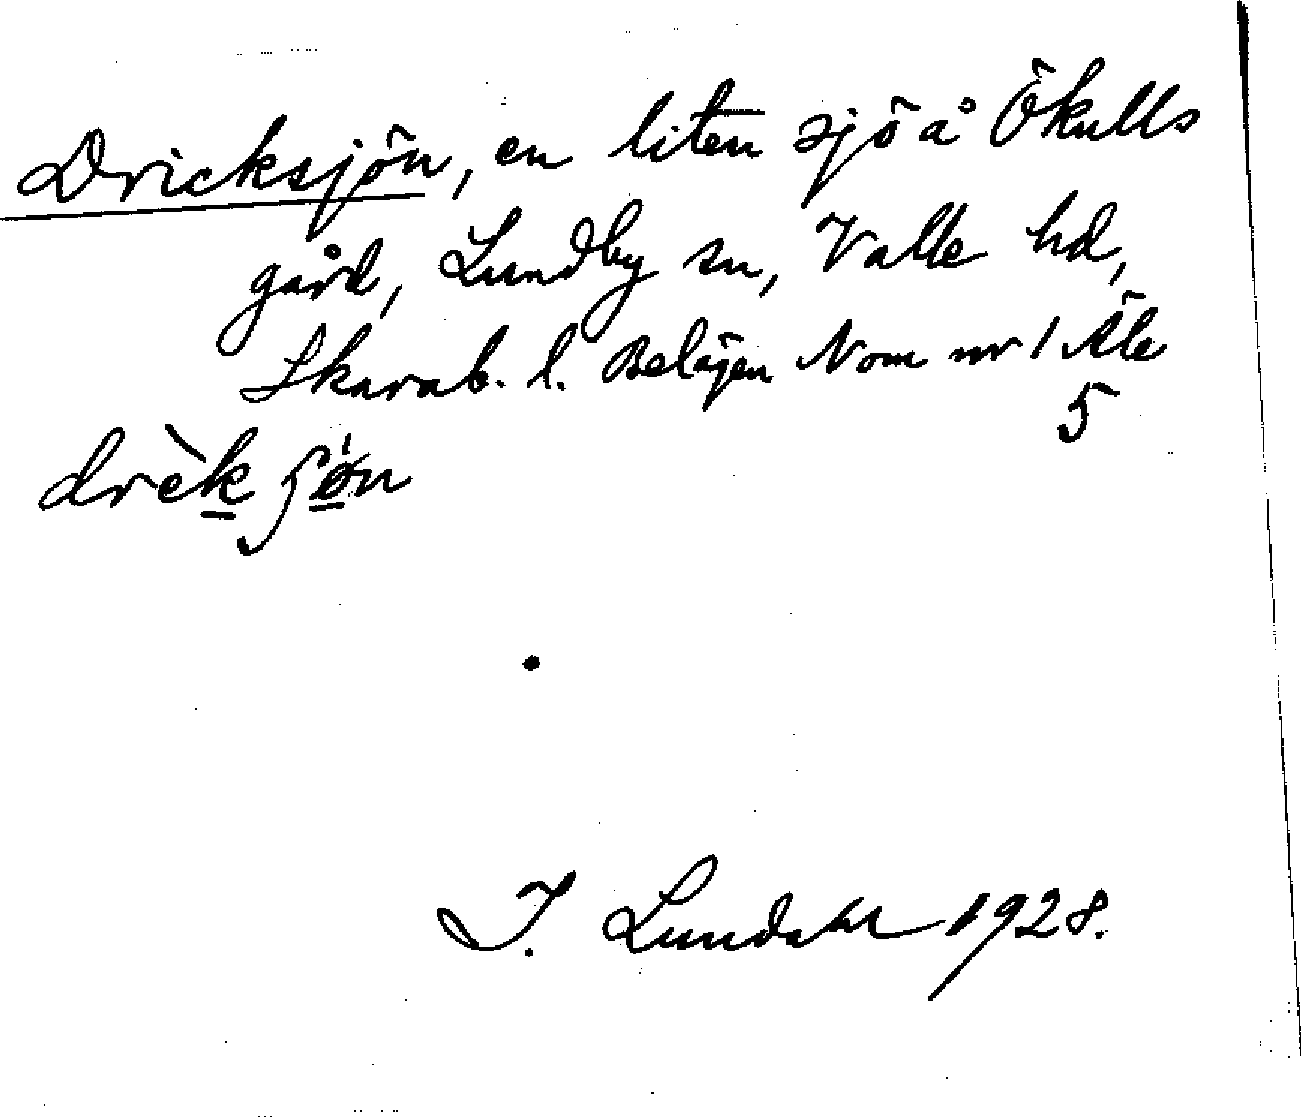 Dricksjön, en liten sjö å Ökulls
gård, Lundby sn, Valle hd,
Skarab. l. Belägen Nom nr 1 Äle
5
drèk sjø̀n
I. Lundahl 1928.